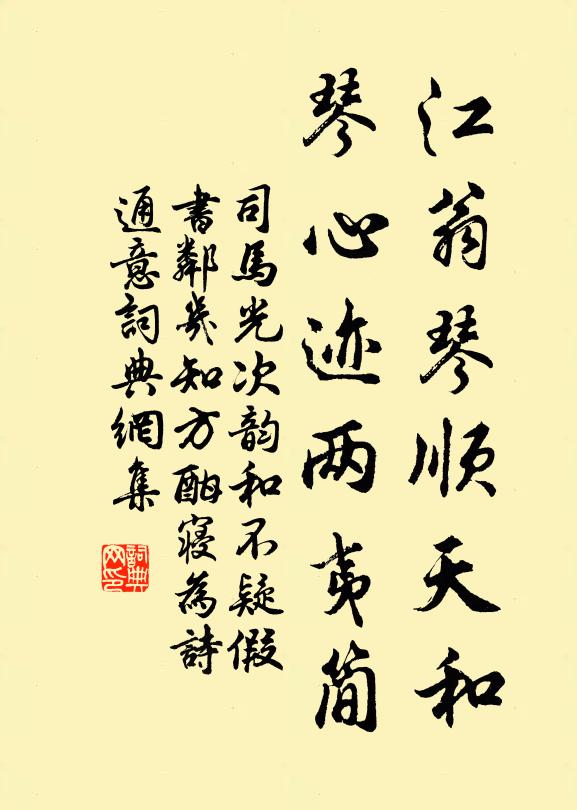 江翁琴顺天和
琴心迹两夷简
司馬光次韵和不疑假
書鄰幾知方酣寝為詩
通意詞典網集
詞典
网印